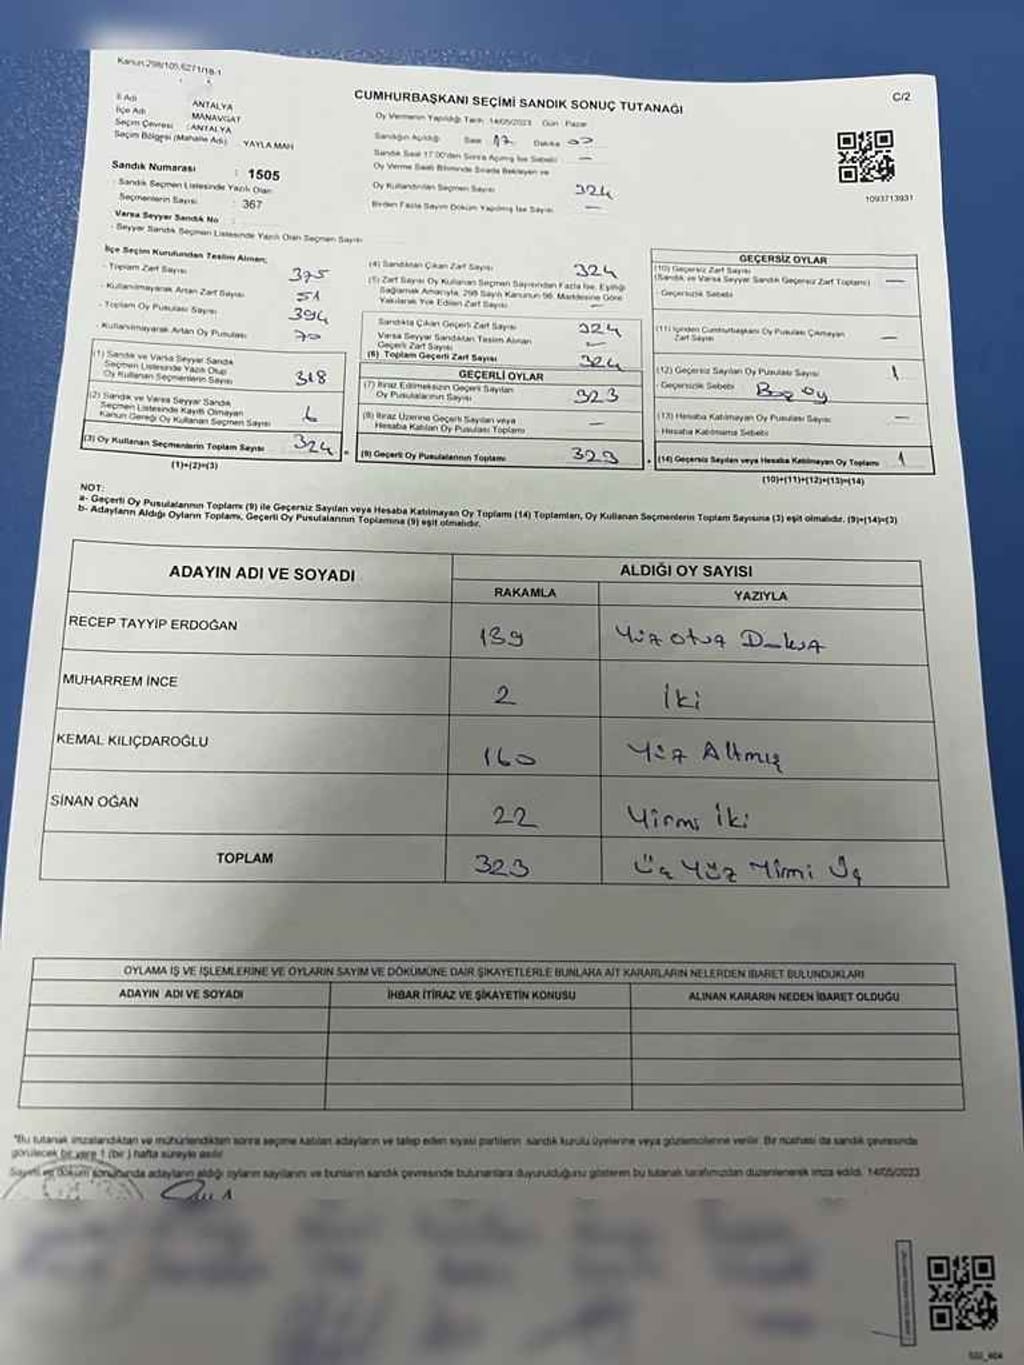 Kanun:298/105,6271/18-1
CUMHURBAŞKANI SEÇİMİ SANDIK SONUÇ TUTANAĞI
C/2
İl Adı ANTALYA
İlçe Adı MANAVGAT
Seçim Çevresi : ANTALYA
Seçim Bölgesi (Mahalle Adı) YAYLA MAH
Sandık Numarası : 1505
Sandık Seçmen Listesinde Yazılı Olan
Seçmenlerin Sayısı : 367
Varsa Seyyar Sandık No
- Seyyar Sandık Seçmen Listesinde Yazılı Olan Seçmen Sayısı
Oy Vermenin Yapıldığı Tarih: 14/05/2023 Gün Pazar
Sandığın Açıldığı Saat 17 Dakika 00
Sandık Saat 17:00'den Sonra Açılmış İse Sebebi —
Oy Verme Saati Bitiminde Sırada Bekleyen ve
Oy Kullandırılan Seçmen Sayısı 324
Birden Fazla Sayım Döküm Yapılmış İse Sayısı —
1093713931
İlçe Seçim Kurulundan Teslim Alınan;
- Toplam Zarf Sayısı 375
- Kullanılmayarak Artan Zarf Sayısı 51
- Toplam Oy Pusulası Sayısı 394
- Kullanılmayarak Artan Oy Pusulası 70
(1) Sandık ve Varsa Seyyar Sandık
Seçmen Listesinde Yazılı Olup
Oy Kullanan Seçmenlerin Sayısı 318
(2) Sandık ve Varsa Seyyar Sandık
Seçmen Listesinde Kayıtlı Olmayan
Kanun Gereği Oy Kullanan Seçmen Sayısı 6
(3) Oy Kullanan Seçmenlerin Toplam Sayısı 324
(1)+(2)=(3)
(4) Sandıktan Çıkan Zarf Sayısı 324
(5) Zarf Sayısı Oy Kullanan Seçmen Sayısından Fazla İse, Eşitliği
Sağlamak Amacıyla, 298 Sayılı Kanunun 98. Maddesine Göre
Yakılarak Yok Edilen Zarf Sayısı —
Sandıkta Çıkan Geçerli Zarf Sayısı 324
Varsa Seyyar Sandıktan Teslim Alınan
Geçerli Zarf Sayısı —
(6) Toplam Geçerli Zarf Sayısı 324
GEÇERLİ OYLAR
(7) İtiraz Edilmeksizin Geçerli Sayılan
Oy Pusulalarının Sayısı 323
(8) İtiraz Üzerine Geçerli Sayılan veya
Hesaba Katılan Oy Pusulası Toplamı —
(9) Geçerli Oy Pusulalarının Toplamı 323
GEÇERSİZ OYLAR
(10) Geçersiz Zarf Sayısı
(Sandık ve Varsa Seyyar Sandık Geçersiz Zarf Toplamı) —
- Geçersizlik Sebebi
(11) İçinden Cumhurbaşkanı Oy Pusulası Çıkmayan
Zarf Sayısı —
(12) Geçersiz Sayılan Oy Pusulası Sayısı 1
- Geçersizlik Sebebi Boş oy
(13) Hesaba Katılmayan Oy Pusulası Sayısı —
- Hesaba Katılmama Sebebi
(14) Geçersiz Sayılan veya Hesaba Katılmayan Oy Toplamı 1
(10)+(11)+(12)+(13)=(14)
NOT:
a- Geçerli Oy Pusulalarının Toplamı (9) ile Geçersiz Sayılan veya Hesaba Katılmayan Oy Toplamı (14) Toplamları, Oy Kullanan Seçmenlerin Toplam Sayısına (3) eşit olmalıdır. (9)+(14)=(3)
b- Adayların Aldığı Oyların Toplamı, Geçerli Oy Pusulalarının Toplamına (9) eşit olmalıdır.
ADAYIN ADI VE SOYADI
ALDIĞI OY SAYISI
RAKAMLA YAZIYLA
RECEP TAYYİP ERDOĞAN 139 Yüz otuz Dokuz
MUHARREM İNCE 2 İki
KEMAL KILIÇDAROĞLU 160 Yüz Altmış
SİNAN OĞAN 22 Yirmi İki
TOPLAM 323 Üç Yüz Yirmi Üç
OYLAMA İŞ VE İŞLEMLERİNE VE OYLARIN SAYIM VE DÖKÜMÜNE DAİR ŞİKAYETLERLE BUNLARA AİT KARARLARIN NELERDEN İBARET BULUNDUKLARI
ADAYIN ADI VE SOYADI İHBAR İTİRAZ VE ŞİKAYETİN KONUSU ALINAN KARARIN NEDEN İBARET OLDUĞU
*Bu tutanak imzalandıktan ve mühürlendikten sonra seçime katılan adayların ve talep eden siyasi partilerin sandık kurulu üyelerine veya gözlemcilerine verilir. Bir nüshası da sandık çevresinde
görülecek bir yere 1 (bir) hafta süreyle asılır.
Sayım ve döküm sonucunda adayların aldığı oyların sayılarını ve bunların sandık çevresinde bulunanlara duyurulduğunu gösteren bu tutanak tarafımızdan düzenlenerek imza edildi. 14/05/2023